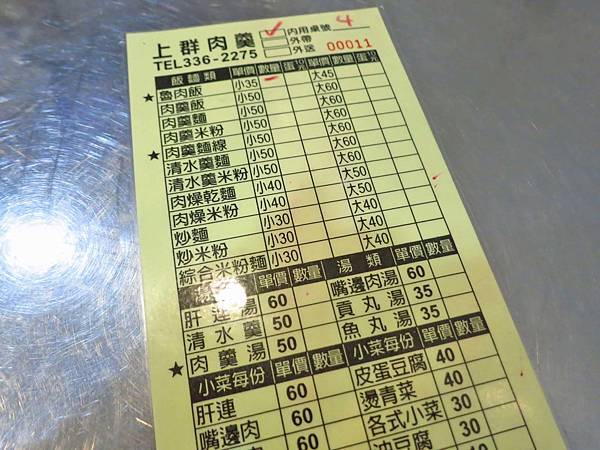 上群肉羹 ✓ 內用桌號 4
TEL336-2275 外帶
外送 00011
飯麵類 單價 數量 蛋10元 單價 數量 蛋10元
★ 魯肉飯 小35 大45
肉羹飯 小50 大60
肉羹麵 小50 大60
肉羹米粉 小50 大60
★ 肉羹麵線 小50 大60
清水羹麵 小50 大60
清水羹米粉 小50 大60
肉燥乾麵 小40 大50
肉燥米粉 小40 大50
炒麵 小30 大40
炒米粉 小30 大40
綜合米粉麵 小30 大40
單價 數量 湯類 單價 數量
肝連湯 60 嘴邊肉湯 60
清水羹 50 貢丸湯 35
★ 肉羹湯 50 魚丸湯 35
小菜每份 單價 數量 小菜每份 單價 數量
肝連 60 皮蛋豆腐 40
嘴邊肉 60 燙青菜 40
60 各式小菜 30
油豆腐 30